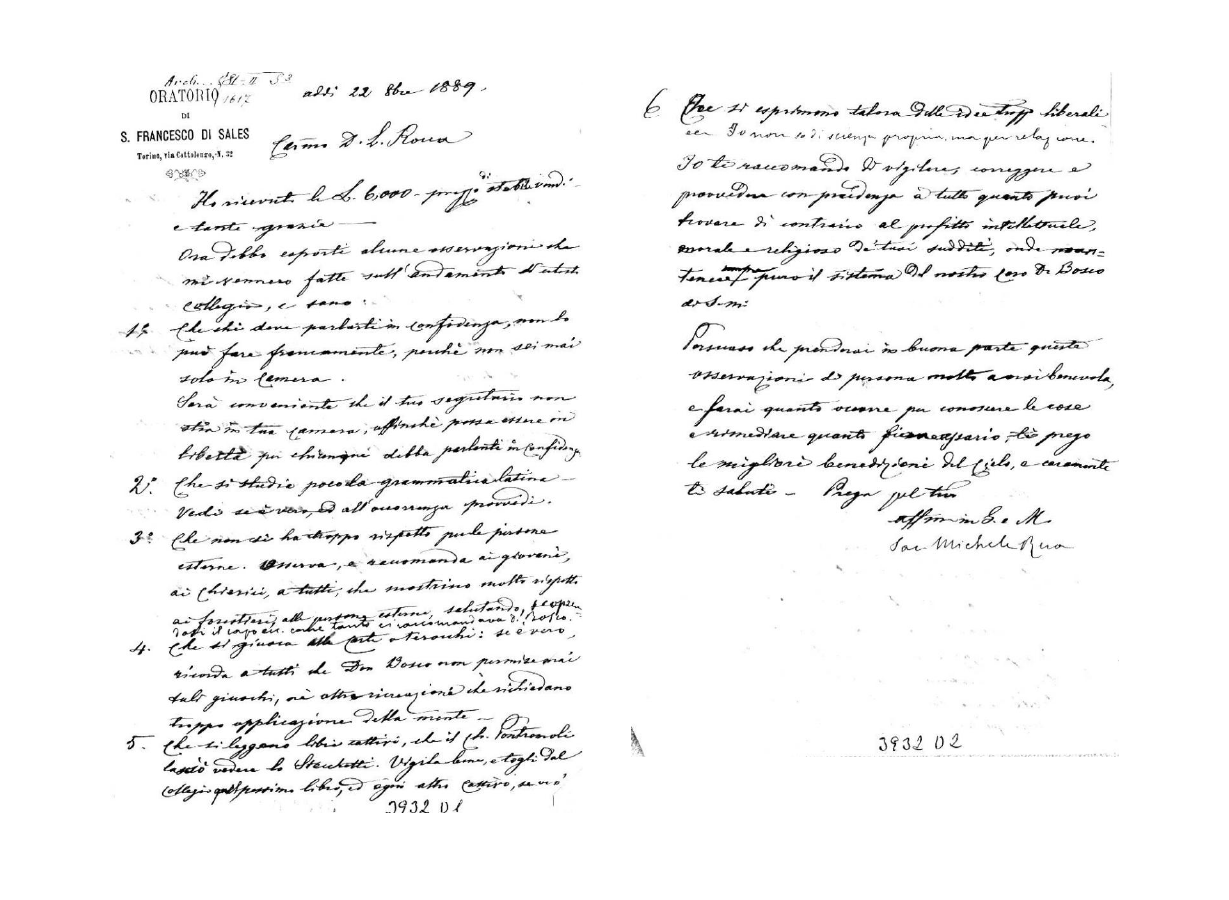 ORATORIO
1617
DI
S. FRANCESCO DI SALES
Torino, via Cottolengo, N. 32
addì 22 8bre 1889.
Carmo D. L. Rocca
Ho ricevuto le L. 6,000 - prezzo di stabile vend.
e tante grazie
Ora debbo esporti alcune osservazioni che
mi vennero fatte sull'andamento
collegio, e sono:
1º. Che chi deve parlarti in confidenza, non lo
può fare francamente, perchè non sei mai
solo in camera.
Sarà conveniente che il tuo segretario non
stia in tua camera, affinchè possa essere in
libertà chiunque debba parlarti in confidenza
2º. Che si studia poco la grammatica latina -
Vedi se è vero, ed all'occorrenza provvedi.
3º Che non si ha troppo rispetto per le persone
esterne. Osserva, e raccomanda ai giovani,
ai Chierici, a tutti, che mostrino molto rispetto
ai forestieri, alle persone esterne, salutando,
il capo ecc. come tanto ci raccomandava D. Bosco.
4. Che si giuoca alle carte o tarocchi: se è vero,
ricorda a tutti che Don Bosco non permise mai
tali giuochi, nè altre ricreazioni che richiedano
troppo applicazione della mente -
5. Che si leggano libri cattivi, che il Ch.
lasciò vedere lo Stecchetti. Vigila bene, e togli dal
collegio quel pessimo libro, ed ogni altro cattivo, se vi è
3932 D1
6 Che si esprimono talora delle idee troppo liberali
ecc. Io non so di scienza propria, ma per relazione.
Io ti raccomando di vigilare, correggere e
provvedere con prudenza a tutto quanto puoi
trovare di contrario al profitto intellettuale,
morale e religioso de' tuoi sudditi, onde man-
tenere sempre puro il sistema del nostro caro D. Bosco
di S. m:
Persuaso che prenderai in buona parte queste
osservazioni di persona molto a noi benevola,
e farai quanto occorre per conoscere le cose
e rimediare quanto fia necessario, ti prego
le migliori benedizioni del Cielo, e caramente
ti saluto - Prega pel tuo
affmo in G. e M.
Sac. Michele Rua
3932 D2